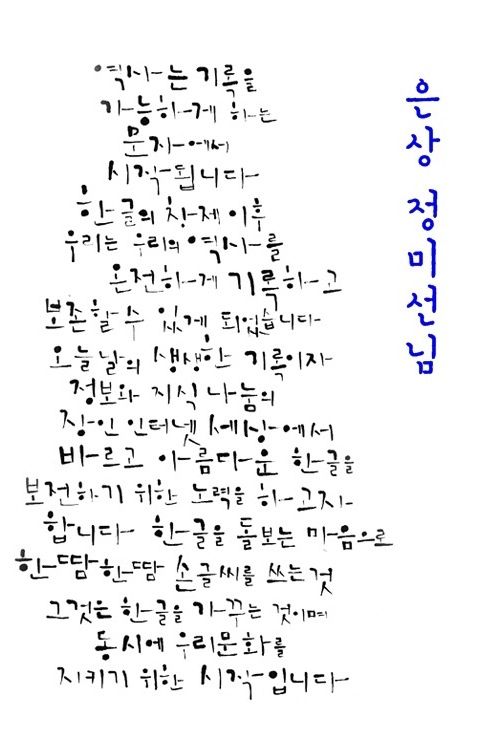 역사는 기록을
가능하게 하는
문자에서
시작됩니다
한글의 창제 이후
우리는 우리의 역사를
온전하게 기록하고
보존할 수 있게 되었습니다
오늘날의 생생한 기록이자
정보와 지식 나눔의
장인 인터넷 세상에서
바르고 아름다운 한글을
보전하기 위한 노력을 하고자
합니다 한글을 돌보는 마음으로
한땀한땀 손글씨를 쓰는것
그것은 한글을 가꾸는 것이며
동시에 우리문화를
지키기 위한 시작입니다
은상 정미선님